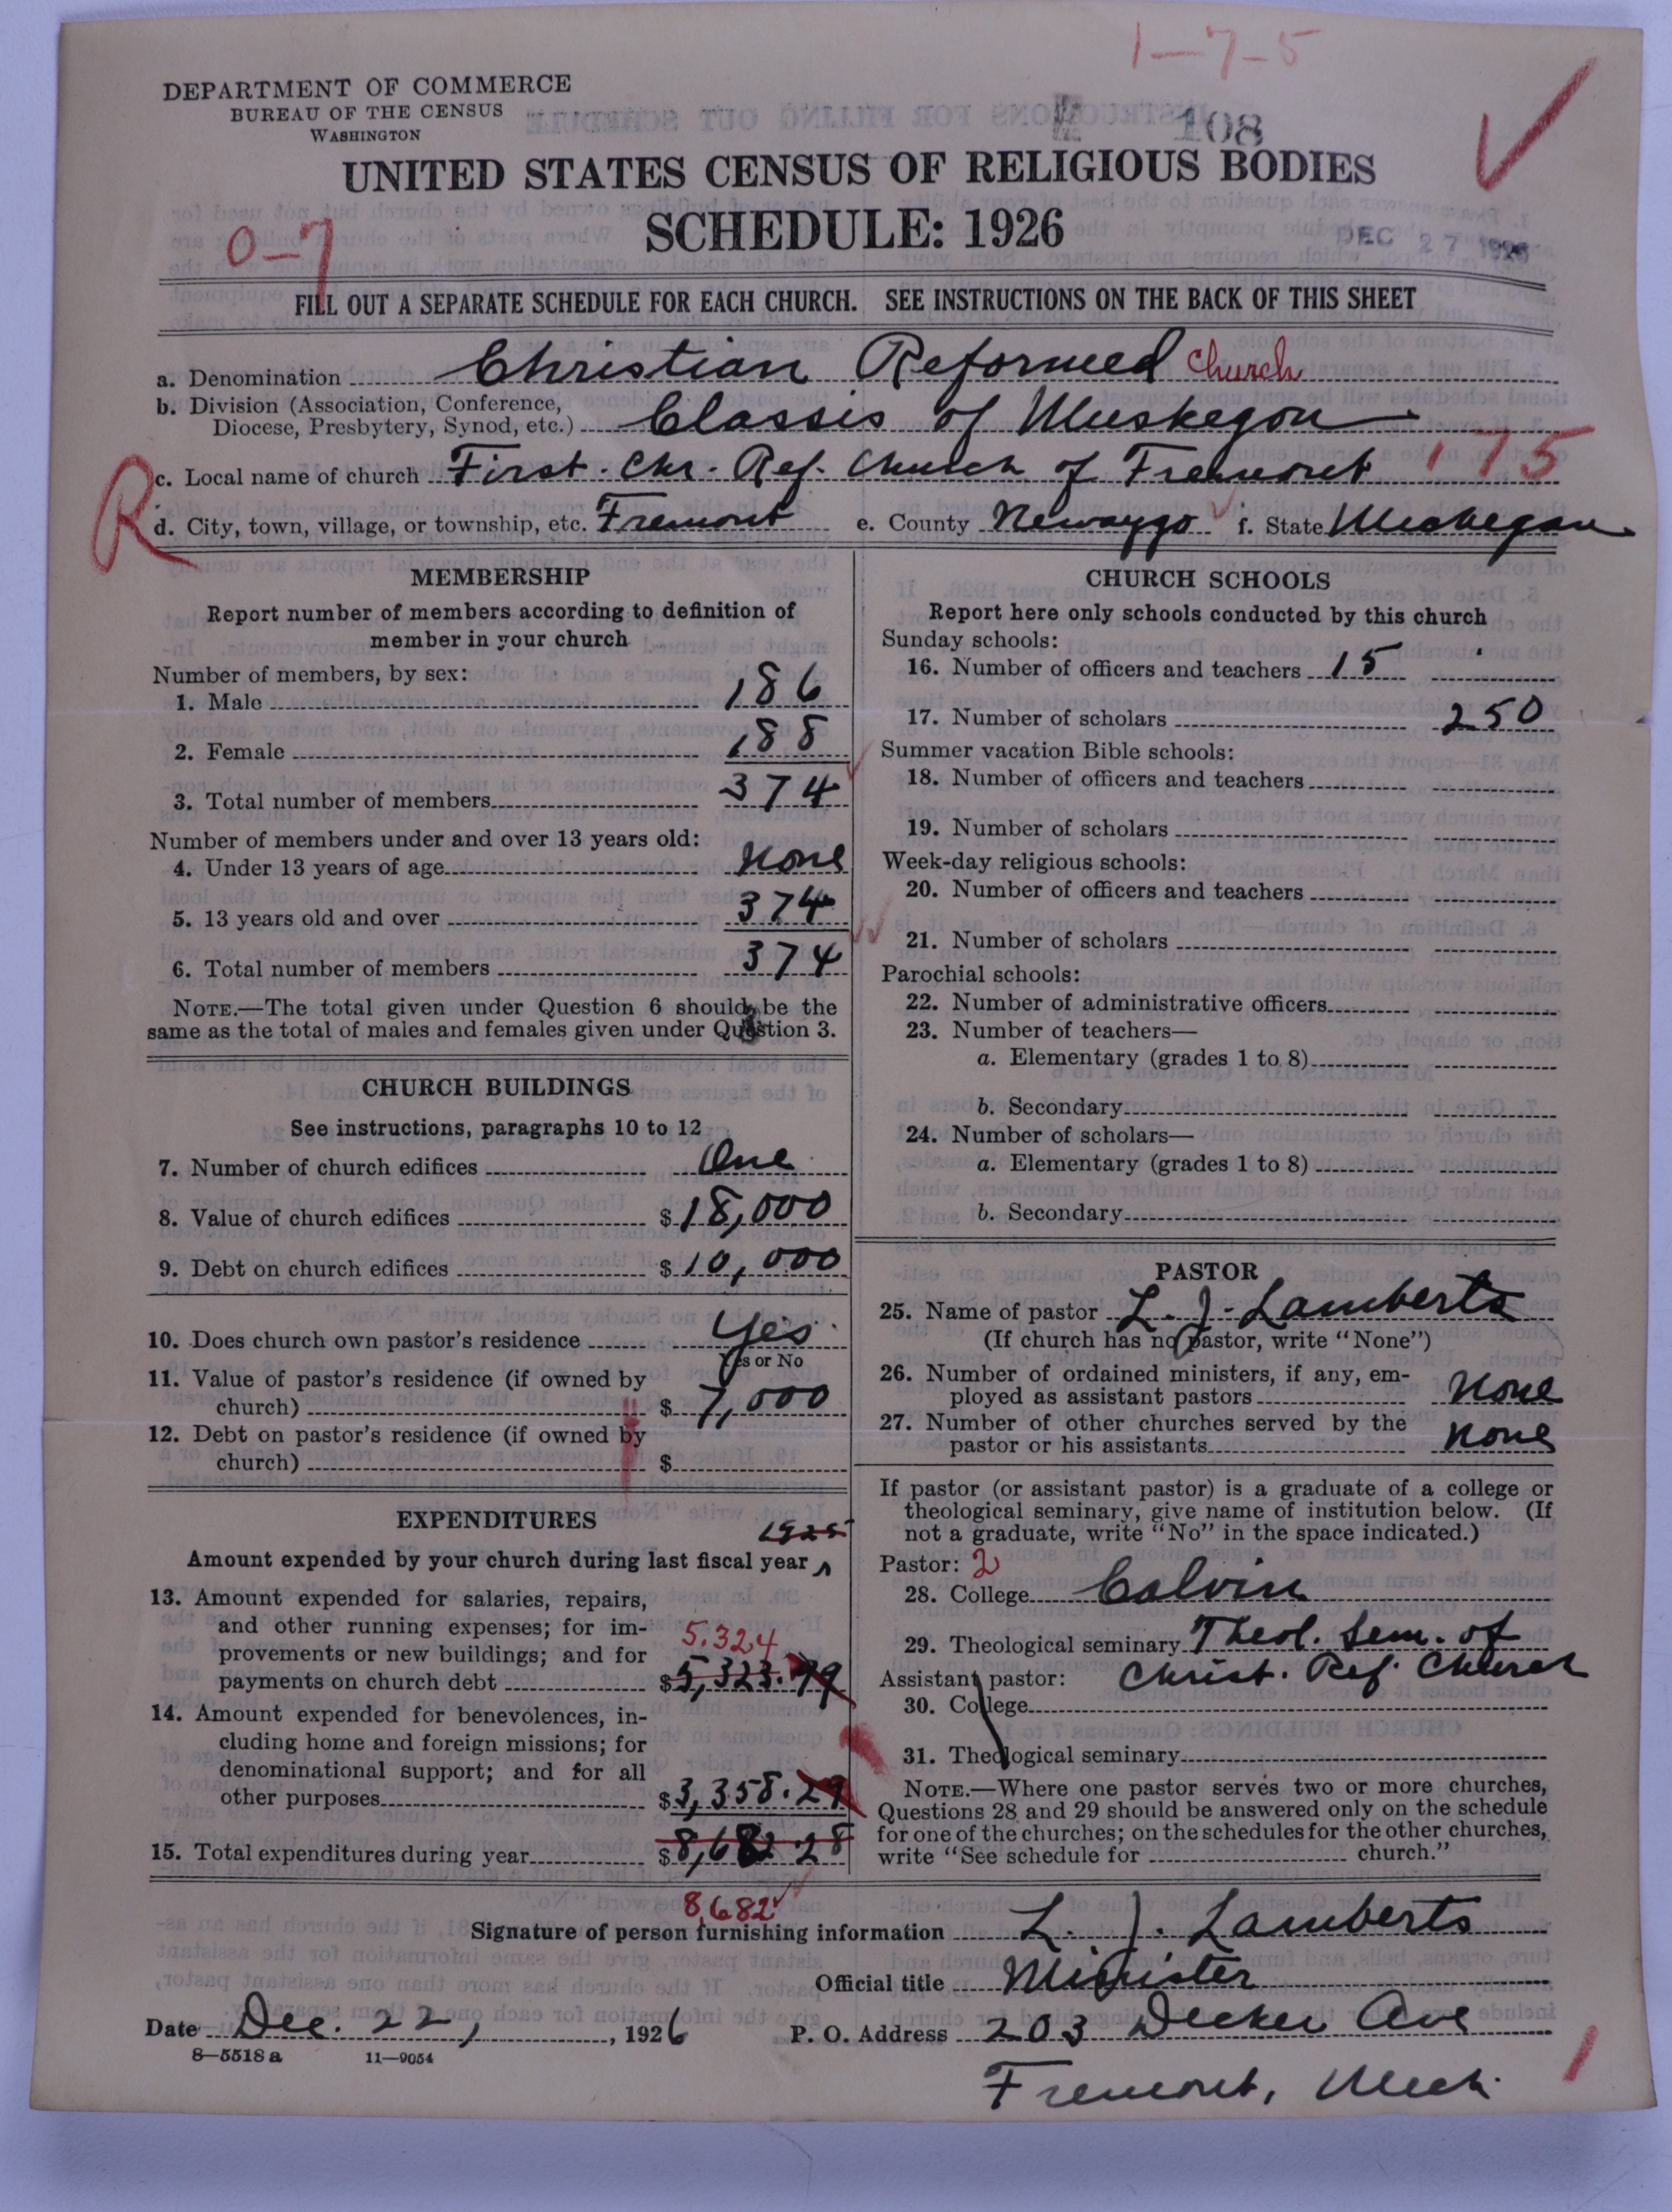 1-7-5
DEPARTMENT OF COMMERCE
BUREAU OF THE CENSUS
WASHINGTON
108
UNITED STATES CENSUS OF RELIGIOUS BODIES
SCHEDULE: 1926
DEC 27 1926
0-7
FILL OUT A SEPARATE SCHEDULE FOR EACH CHURCH. SEE INSTRUCTIONS ON THE BACK OF THIS SHEET
a. Denomination Christian Reformed Church
b. Division (Association, Conference,
Diocese, Presbytery, Synod, etc.) Classis of Muskegon
c. Local name of church First. Chr. Ref. Church of Fremont 175
R
d. City, town, village, or township, etc. Fremont e. County Newaygo f. State Michegan
MEMBERSHIP
Report number of members according to definition of
member in your church
Number of members, by sex:
1. Male 186
2. Female 188
3. Total number of members 374
Number of members under and over 13 years old:
4. Under 13 years of age None
5. 13 years old and over 374
6. Total number of members 374
NOTE.—The total given under Question 6 should be the
same as the total of males and females given under Question 3.
CHURCH BUILDINGS
See instructions, paragraphs 10 to 12
7. Number of church edifices One
8. Value of church edifices $ 18,000
9. Debt on church edifices $ 10,000
10. Does church own pastor's residence Yes
Yes or No
11. Value of pastor's residence (if owned by
church) $ 7,000
12. Debt on pastor's residence (if owned by
church) $
EXPENDITURES
1925
Amount expended by your church during last fiscal year
13. Amount expended for salaries, repairs,
and other running expenses; for im-
provements or new buildings; and for
5.324
payments on church debt $ 5,323.99
14. Amount expended for benevolences, in-
cluding home and foreign missions; for
denominational support; and for all
other purposes $ 3,358.29
15. Total expenditures during year $ 8,682.28
8,682
CHURCH SCHOOLS
Report here only schools conducted by this church
Sunday schools:
16. Number of officers and teachers 15
17. Number of scholars 250
Summer vacation Bible schools:
18. Number of officers and teachers
19. Number of scholars
Week-day religious schools:
20. Number of officers and teachers
21. Number of scholars
Parochial schools:
22. Number of administrative officers
23. Number of teachers—
a. Elementary (grades 1 to 8)
b. Secondary
24. Number of scholars—
a. Elementary (grades 1 to 8)
b. Secondary
PASTOR
25. Name of pastor L. J. Lamberts
(If church has no pastor, write "None")
26. Number of ordained ministers, if any, em-
ployed as assistant pastors None
27. Number of other churches served by the
pastor or his assistants None
If pastor (or assistant pastor) is a graduate of a college or
theological seminary, give name of institution below. (If
not a graduate, write "No" in the space indicated.)
Pastor: 2
28. College Calvin
29. Theological seminary Theol. Sem. of
Christ. Ref. Church
Assistant pastor:
30. College
31. Theological seminary
NOTE.—Where one pastor serves two or more churches,
Questions 28 and 29 should be answered only on the schedule
for one of the churches; on the schedules for the other churches,
write "See schedule for church."
Signature of person furnishing information L. J. Lamberts
Official title Minister
Date Dec. 22, 1926 P. O. Address 203 Decker Ave
8—5518 a 11—9054
Fremont, Mich.
1